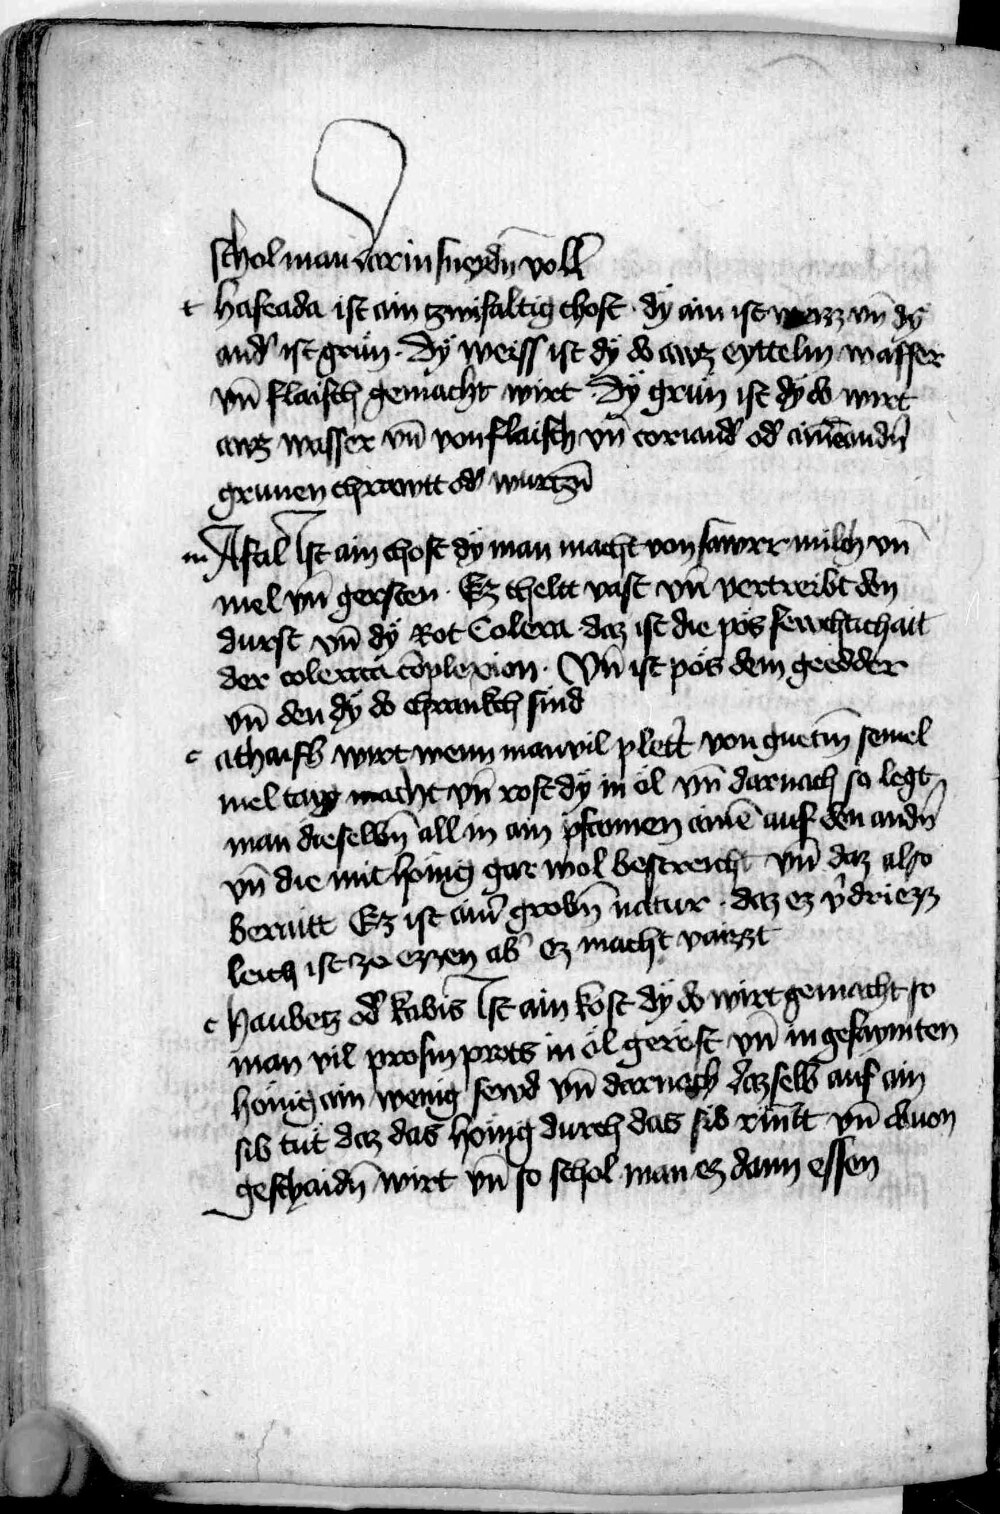 schol man darin sneydn̄ voll
t hafeada ist ain zwifaltig chost · dÿ ain ist weizz vn̄ dÿ
and' ist grün · Dÿ weiss ist dÿ do awz eyttelm wasser
vn̄ flaisch gemacht wirt · Dÿ grün ist dÿ do wirt
awz wasser vn̄ von flaisch vn̄ coriand' od'
grunen chrawtt od' wurtzn̄
m Aseal Ist ain chost dÿ man macht von sawrr milch vn̄
mel vn̄ gersten · Ez cheltt vast vn̄ vertreibt den
durst vn̄ dÿ Rot Colera daz ist die pös fewchtichait
der colerica cōplexion · Vn̄ ist pös dem geedder
vn̄ den dÿ do chrankch sind
c athaifs wirt wenn man vil plet' von guetm̄ semel
mel taig macht vn̄ rost dÿ in öl vn̄ darnach so legt
man dieselbn̄ all in ain pfannen ainē auf den andn̄
vn̄ die mit hönig gar wol bestreicht vn̄ daz also
beraitt Ez ist ain' grobn̄ natur · daz ez v'driezz
leich ist ze ezzen ab' ez macht vaizzt
c haubetz od' kabis Ist ain kost dÿ do wirt gemacht so
man vil prosm prots in öl geröst vn̄ in gesaymten
hönig ain wenig sewd vn̄ darnach dazselb auf ain
sib tüt daz das hönig durch das sib rin̄tt vn̄ dauon
geschaidn̄ wirt vn̄ so schol man ez dann essen